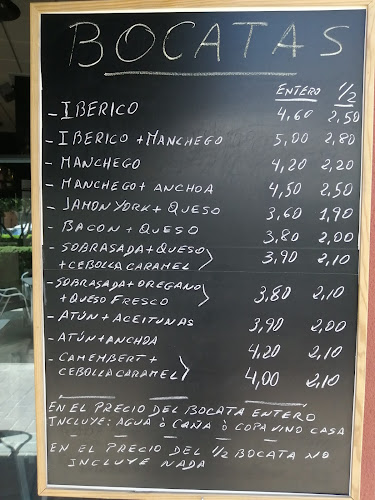 BOCATAS
ENTERO 1/2
- IBERICO 4,60 2,50
- IBERICO + MANCHEGO 5,00 2,80
- MANCHEGO 4,20 2,20
- MANCHEGO + ANCHOA 4,50 2,50
- JAMON YORK + QUESO 3,60 1,90
- BACON + QUESO 3,80 2,00
- SOBRASADA + QUESO
+ CEBOLLA CARAMEL 3,90 2,10
- SOBRASADA + OREGANO
+ QUESO FRESCO 3,80 2,10
- ATÚN + ACEITUNAS 3,90 2,00
- ATÚN + ANCHOA 4,20 2,10
- CAMEMBERT +
CEBOLLA CARAMEL 4,00 2,10
EN EL PRECIO DEL BOCATA ENTERO
INCLUYE: AGUA Ò CAÑA Ò COPA VINO CASA
EN EL PRECIO DEL 1/2 BOCATA NO
INCLUYE NADA